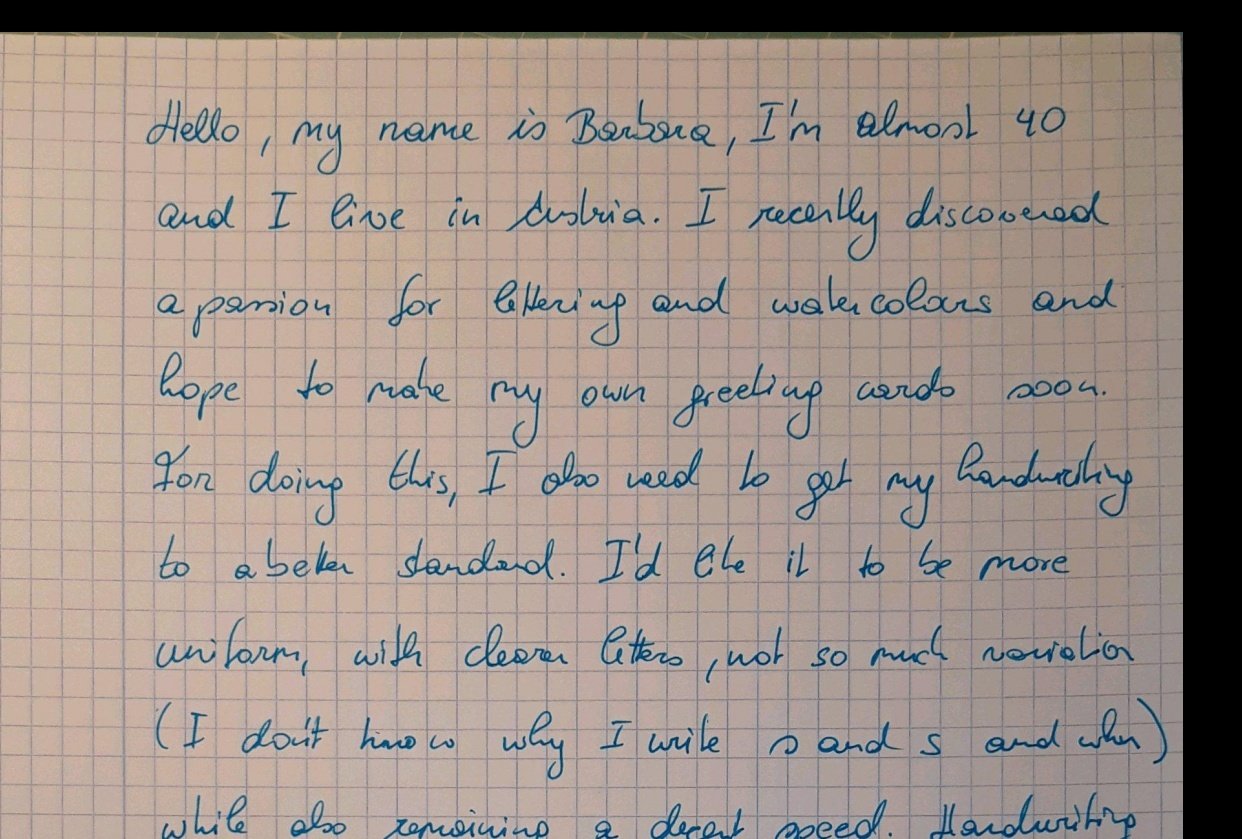 Hello, my name is Barbara, I'm almost 40
and I live in Austria. I recently discovered
a passion for lettering and watercolours and
hope to make my own greeting cards soon.
For doing this, I also need to get my handwriting
to a better standard. I'd like it to be more
uniform, with clearer letters, not so much variation
(I don't know why I write s and s and when)
while also remaining a decent speed. Handwriting